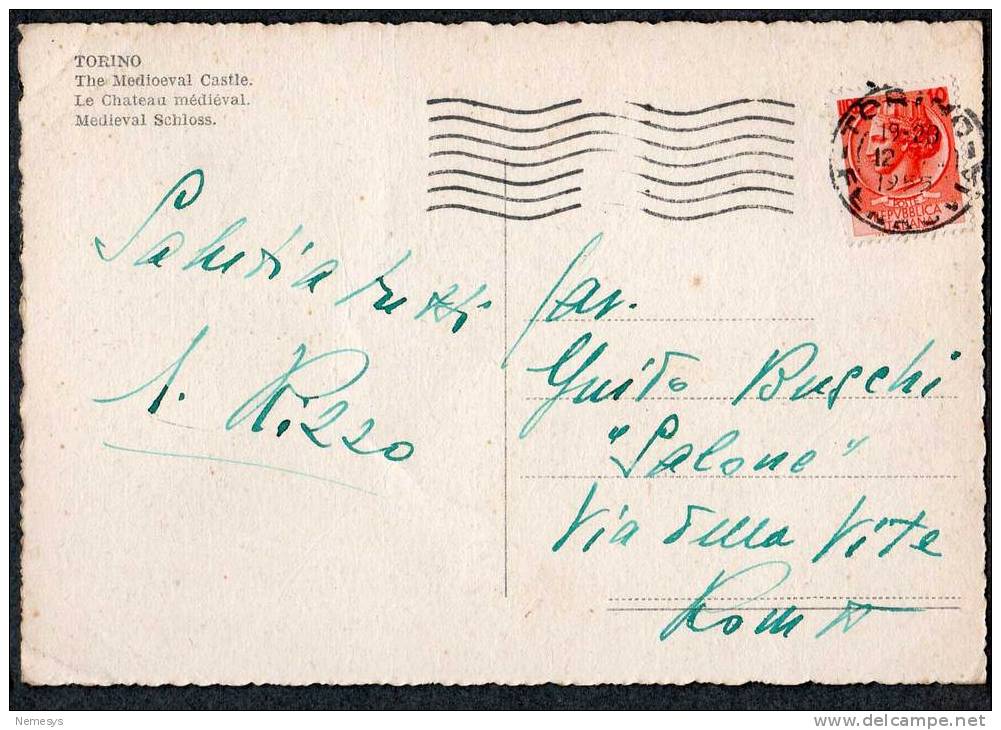 TORINO
The Medioeval Castle.
Le Chateau médiéval.
Medieval Schloss.
19-20
12
1955
POSTE
REPVBBLICA
ITALIANA
Saluti a tutti
Rizzo
Guido Buschi
"Salone"
Via della Vite
Roma
Nemesys
www.delcampe.net